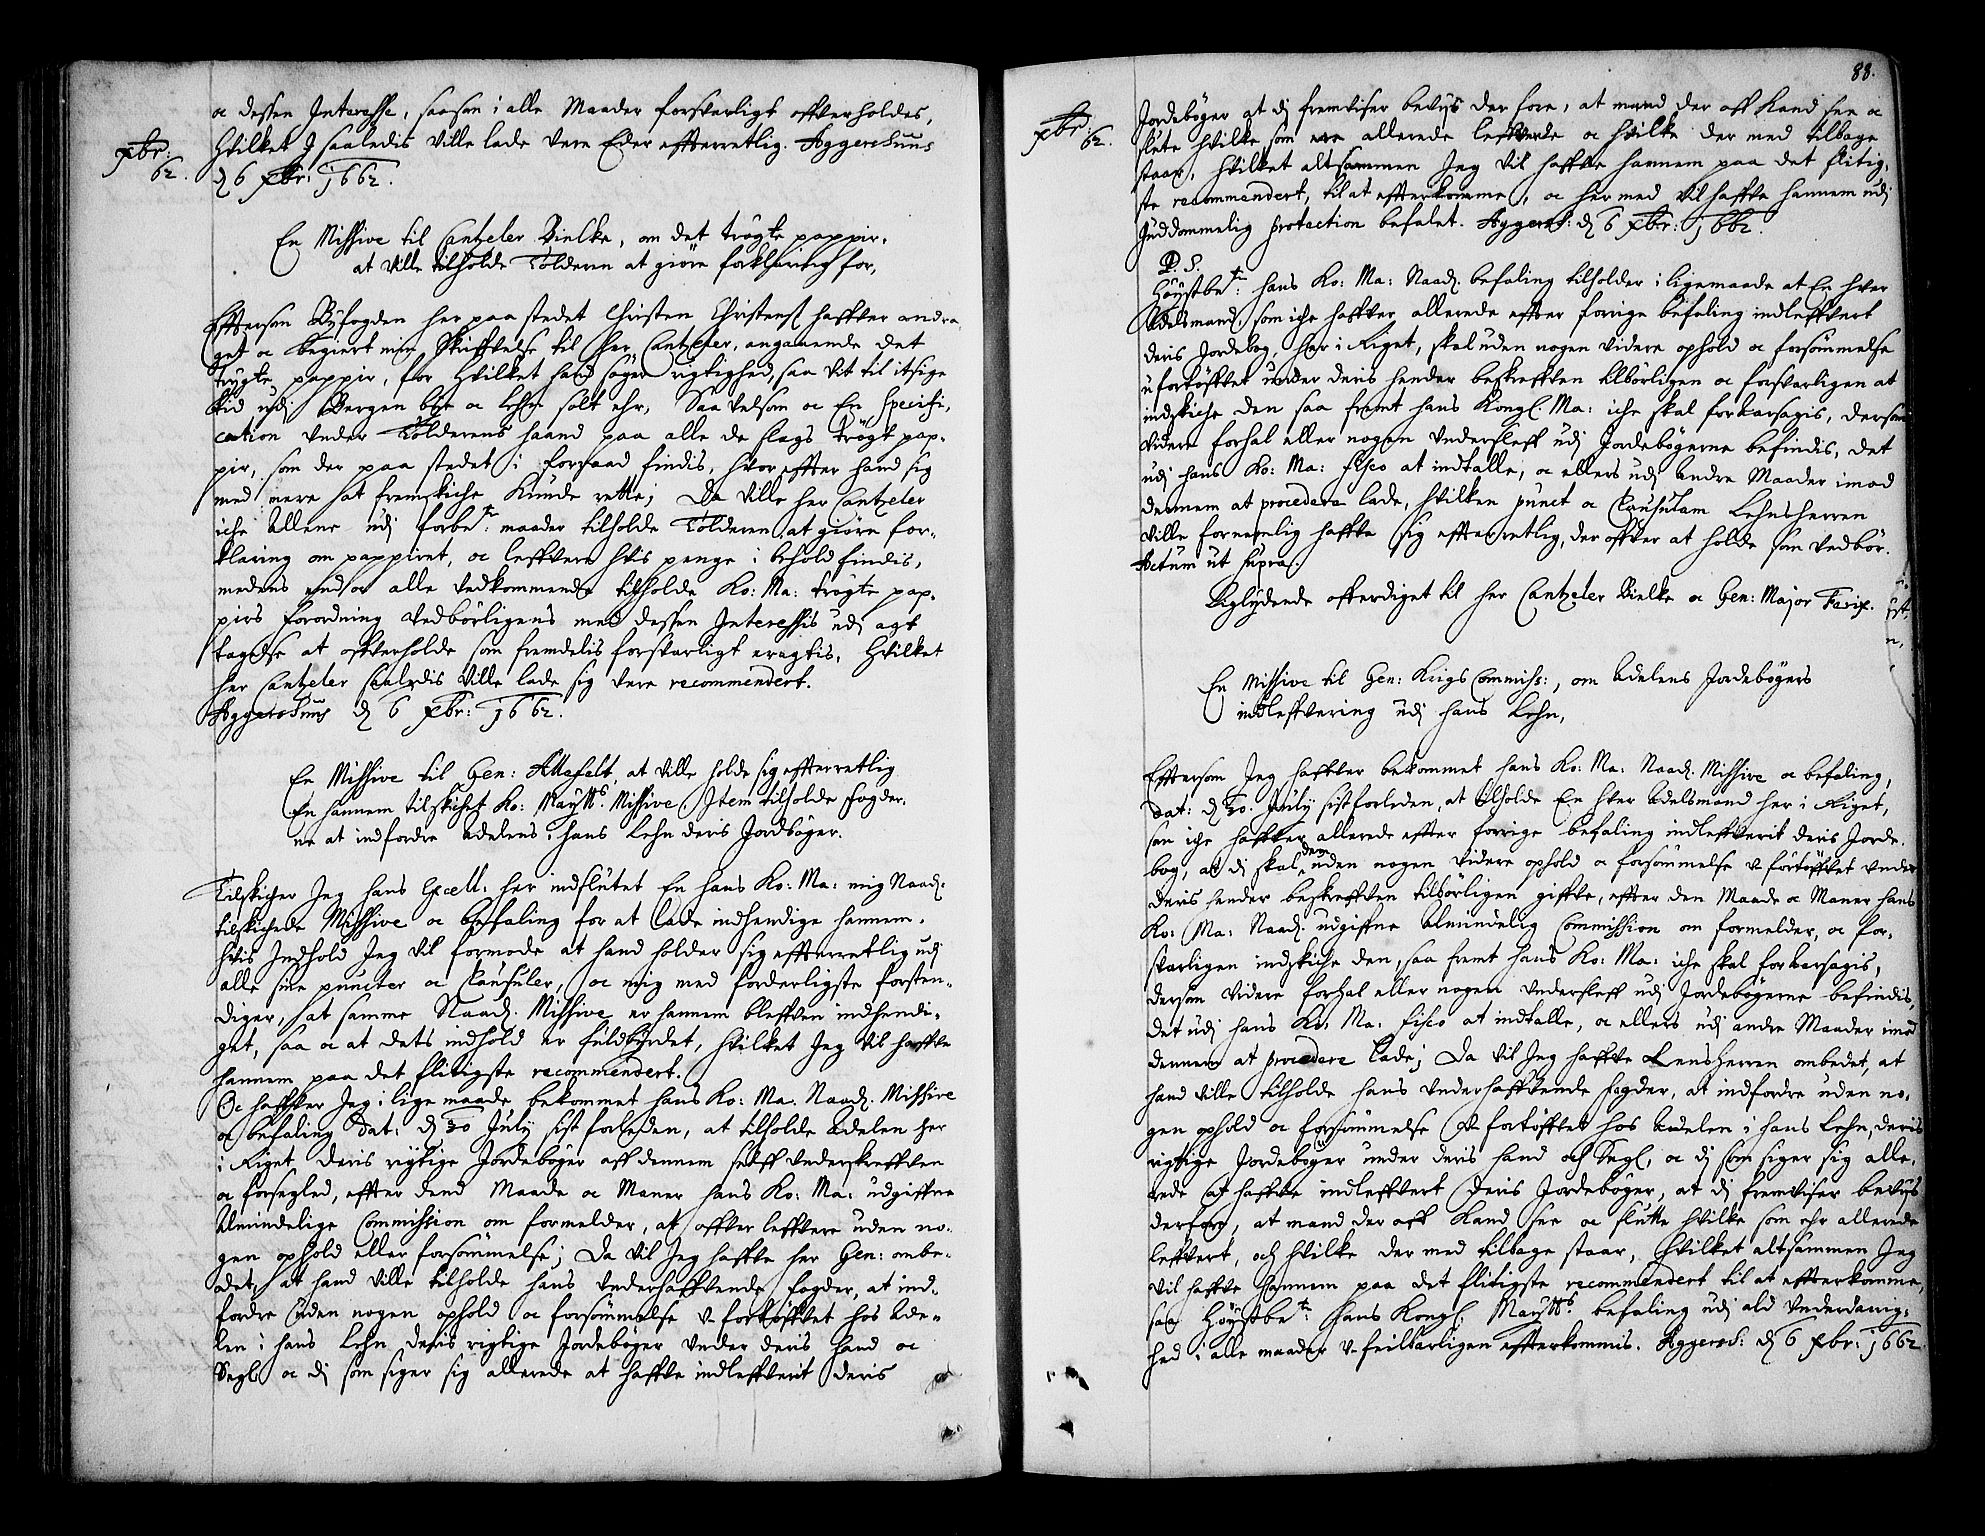 xbr:
62.
oc dessen Interesse, saasom i alle Maader forsvarligt offverholdes,
Hvilket I saaledis ville lade vere Eder effterretlig. Aggershuus
d. 6 xbr: 1662.
En Missive til Cantzeler Bielke, om det trögte pappir,
at ville tilholde Tolderen at giöre forklaring for,
Efftersom Byfogden her paa stedet Christen Christens. haffver andra,
get oc begiert min Skriffvelse til her Cantzeler, anganende det
trygte pappir, for hvilket hand söger rigtighed, saa vit til itsige
tid udj Bergen bye oc Lehn solt ehr, Saa velsom oc En specifi,
cation under Tolderens haand paa alle de slags trögt pap,
pir, som der paa stedet i forraad findis, hvor effter hand sig
med mere at fremskiche kunde rette; Da ville her Cantzeler
iche allene udj forbe.te maader tilholde Tolderen at giöre for,
klaring om pappiret, oc leffvere hvis penge i behold findis,
medens endoc alle vedkommende tilholde Ko: Ma: trögte pap,
pirs forordning vedbörligens med dessen Interessis udj agt
tagelse at offverholde som fremdelis forsvarligt eragtis, Hvilket
her Cantzeler saaledis ville lade sig vere recommendert.
Aggershuus d. 6 xbr: 1662.
En Missive til Gen: Allefelt, at ville holde sig effterretlig
En hannem tilskichet Ko: Maytts Missive Item tilholde fogder,
ne at indfordre Adelens i hans Lehn deris Jordböger.
Tilskicher Jeg hans Excell: her indslutet En hans Ko: Ma: mig Naad.
tilskichede Missive oc befaling for at lade indhendige hannem.
hvis Indhold Jeg vil formode at hand holder sig effterretlig udj
alle sine puncter oc Clausuler, oc mig med forderligste forsten,
diger, at samme Naad. Missive er hannem bleffven indhendi,
get, saa oc at dets indhold er fuldbyrdet, hvilket Jeg vil haffve
hannem paa det flitigste recommendert.
Oc haffver Jeg i lige maade bekommet hans Ko: Ma: Naad. Missive
oc befaling Dat: d. 30 July sist forleden, at tilholde Adelen her
i Riget deris rigtige Jordeböger aff dennem selff underskreffven
oc forseglet, effter dend Maade oc Maner hans Ko: Ma: udgiffne
Almindelige Commission om formelder, at offver leffvere uden no,
gen ophold eller forsömmelse; Da vil Jeg haffve her Gen: ombe,
det, at hand ville tilholde hans underhaffvende fogder, at ind,
fordre uden nogen ophold oc forsömmelse u-fortöffvet hos Ade,
len i hans Lehn deris rigtige Jordeböger under deris hand oc
Segl oc dj som siger sig allerede at haffve indleffverit deris
88.
xbr:
62.
Jordeböger at dj fremviser beviis der fore, at mand der aff kand see oc
slute hvilke som allerede leffverede oc hvilke der med tilbage
staar, hvilket altsammen Jeg vil haffve hannem paa det flitig,
ste recommendert, til at effterkomme, oc her med vil haffve hannem udj
Guddommelig protection befalet. Aggersh: d. 6 xbr: 1662.
P. S.
Höystbe.te hans Ko: Ma: Naad. befaling tilholder i ligemaade at En hver
Adelsmand, som iche haffver allerede effter forrige befaling indleffvert
deris Jordebog, her i Riget, skal uden nogen videre ophold oc forsömmelse
ufortöffvet under deris hender beskreffven tilbörligen oc forsvarligen at
indskiche den saa fremt hans Kongl. Ma: iche skal forarsagis, dersom
videre forhal eller nogen undersleff udj Jordebögerne befindis, det
udj hans Ko: Ma: fisco at indkalle, oc ellers udj andre Maader imod
dennem at procedere lade, hvilken punct oc Clausulam Lehnsherren
ville fornemelig haffve sig effterretlig, der offver at holde som vedbör.
Actum ut supra.
Liglydende afferdiget til her Cantzeler Bielke oc Gen: Major
En Missive til Gen: Krigs Commiss:, om Adelens Jordebögers
indleffvering udj hans Lehn,
Efftersom Jeg haffver bekommet hans Ko: Ma: Naad. Missive oc befaling,
Dat: d. 30. July sistforleden, at tilholde En hver Adelsmand her i Riget,
som iche haffver allerede effter forrige befaling indleffverit deris Jorde,
bog, at dj skal dem uden nogen videre ophold oc forsömmelse u-fortöffvet under
deris hender beskreffven tilbörligen giffve, effter den Maade oc Maner hans
Ko: Ma: Naad. udgiffne Almindelig Commission om formelder, oc for,
svarligen indskiche den, saa fremt hans Ko: Ma: iche skal forarsagis,
dersom videre forhal eller nogen undersleff udj Jordebögerne befindis,
det udj hans Ko: Ma: fisco at indkalle, oc ellers udj andre Maader imod
dennem at procedere lade; Da vil Jeg haffve Lensherren ombedet, at
hand ville tilholde hans underhaffvende fogder, at indfordre uden no,
gen ophold oc forsömmelse u-fortöffvet hos Adelen i hans Lehn, deris
rigtige Jordeböger under deris hand och Segl, oc dj som siger sig alle,
rede at haffve indleffvert deris Jordeböger, at dj fremviser beviis
derfore, at mand der aff kand see oc slutte hvilke som ehr allerede
leffvert, och hvilke der med tilbage staar, Hvilket altsammen Jeg
vil haffve hannem paa det flitigste recommendert til at effterkomme,
saa Höystbe.te Hans Kongl. Maytts befaling udj ald underdanig,
hed i alle maader u-feilbarligen effterkommis. Aggersh: d. 6 xbr: 1662